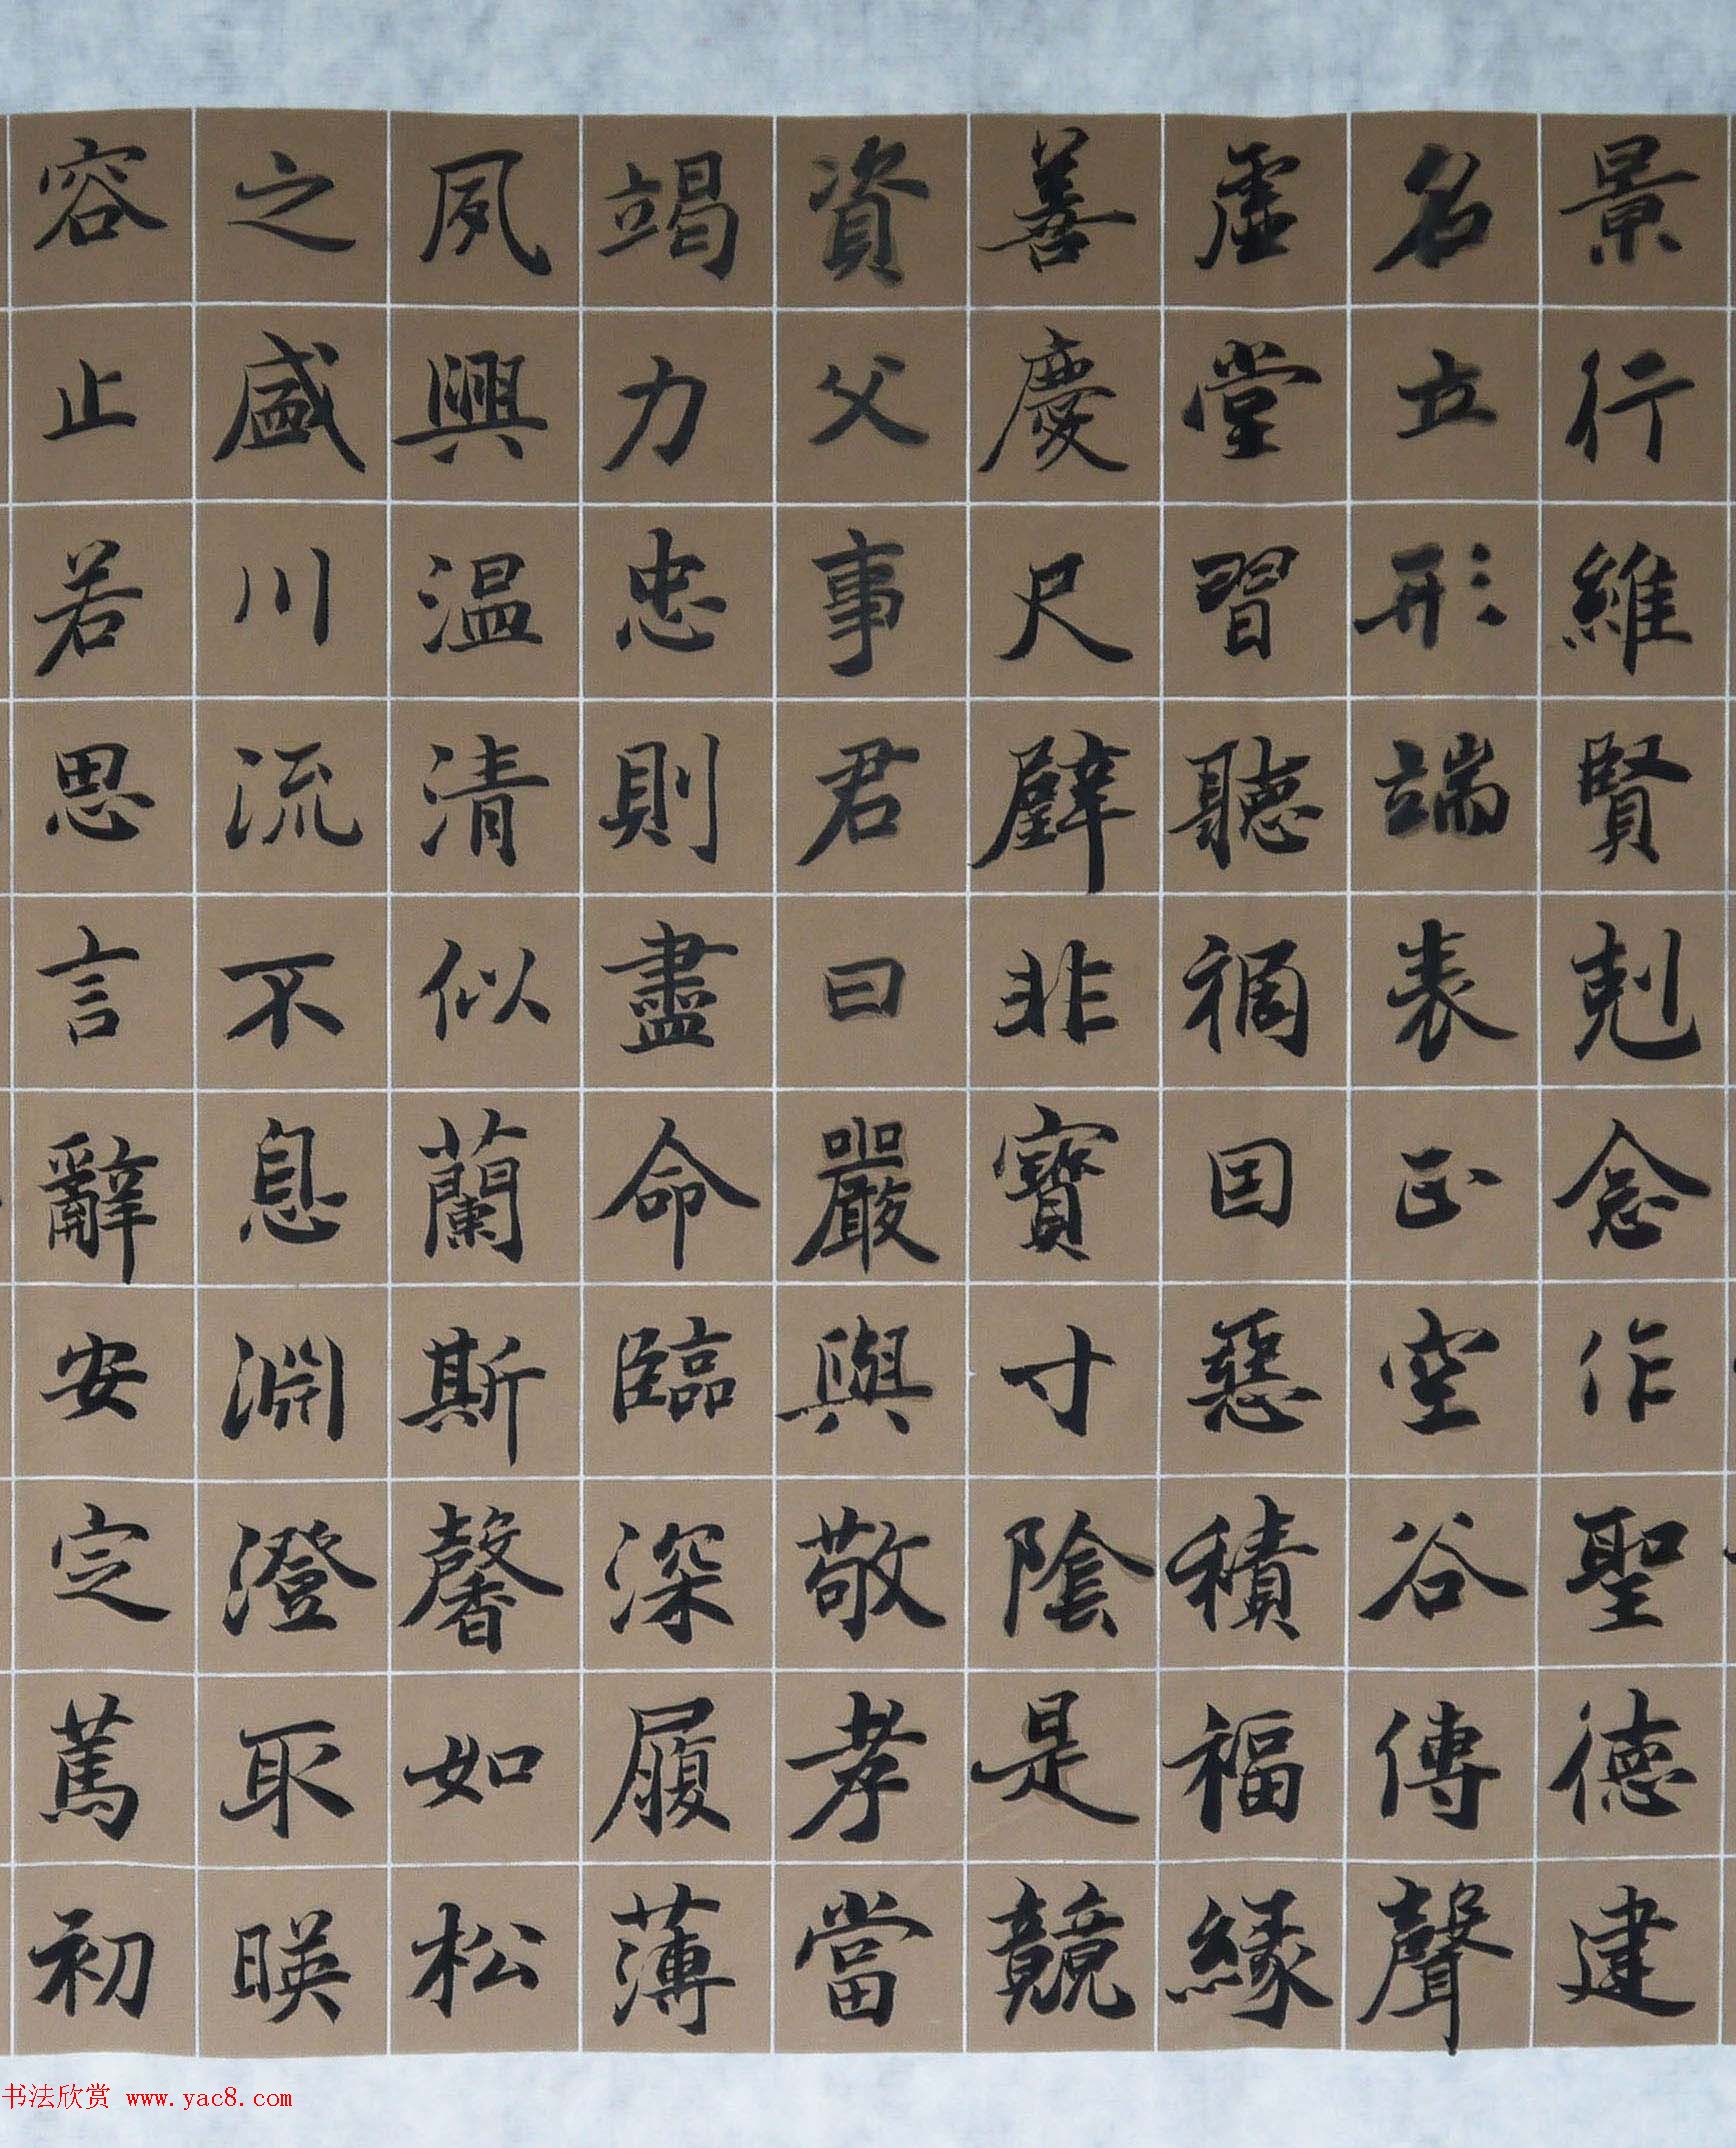 景行維賢剋念作聖德建
名立形端表正空谷傳聲
虛堂習聽禍因惡積福緣
善慶尺璧非寶寸陰是競
資父事君曰嚴與敬孝當
竭力忠則盡命臨深履薄
夙興温清似蘭斯馨如松
之盛川流不息淵澄取暎
容止若思言辭安定篤初
书法欣赏 www.yac8.com